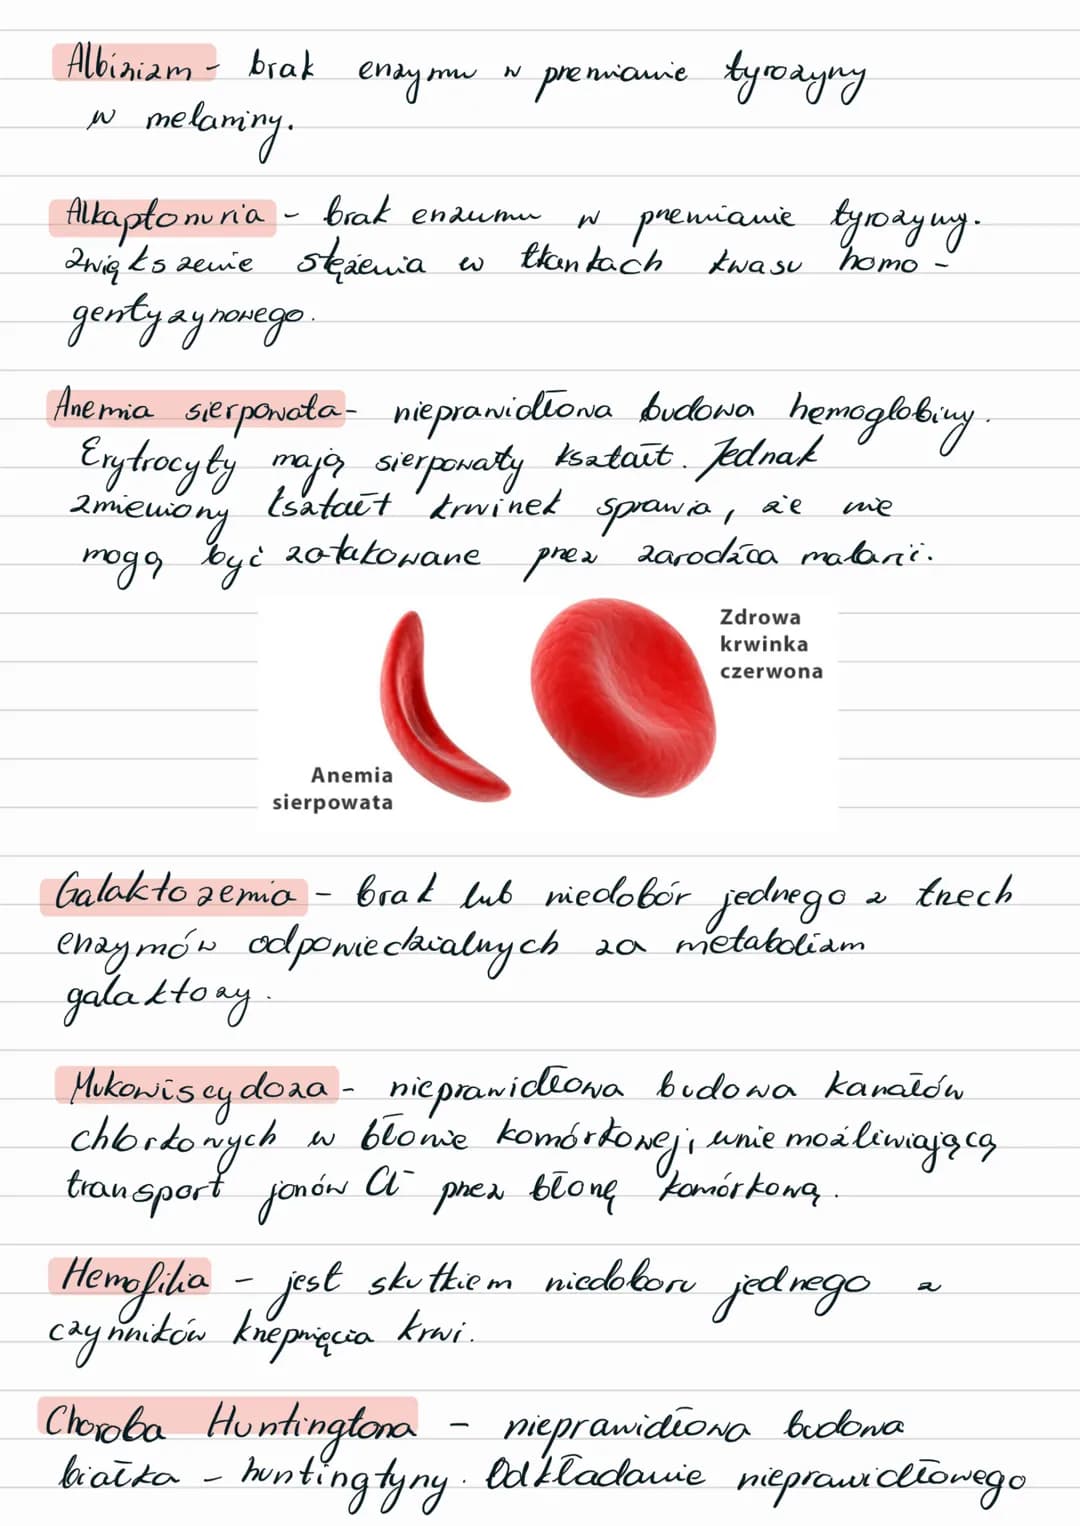 Albinizm - brak enzymu w przemianie tyrozyny
w melaniny.
Alkaptonuria - brak enzumu w przemianie tyrozyny.
zwiększenie stężenia w tkankach kwasu homo-
gentyzynowego.
Anemia sierpowata - nieprawidłowa budowa hemoglobiny.
Erytrocyty mają sierpowaty kształt. Jednak
zmieniony kształt krwinek sprawia, że nie
mogą być zatakowane przez zarodźca malarii.
Zdrowa
krwinka
czerwona
Anemia
sierpowata
Galaktozemia - brak lub niedobór jednego z trzech
enzymów odpowiedzialnych za metabolizm
galaktozy.
Mukowiscydoza - nieprawidłowa budowa kanałów
chlorkowych w błonie komórkowej, unie możliwiającą
transport jonów Cl⁻ przez błonę komórkową.
Hemofilia - jest skutkiem niedoboru jednego z
czynników krzepnięcia krwi.
Choroba Huntingtona - nieprawidłowa budowa
białka - huntingtyny. Odkładanie nieprawidłowego